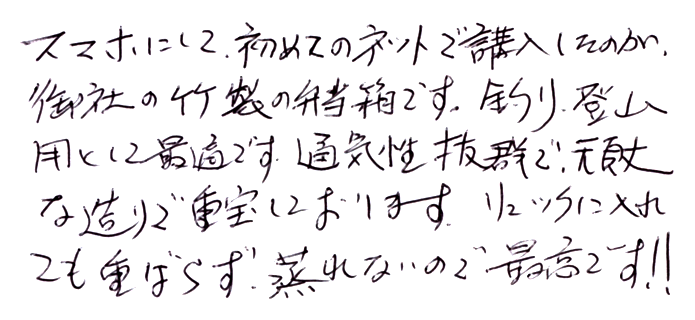 スマホにして、初めてのネットで購入したのが、
御社の竹製の弁当箱です。釣り、登山
用として最適です。通気性抜群で、頑丈
な造りで重宝しております。リュックに入れ
ても重ばらず、蒸れないので最高です!!